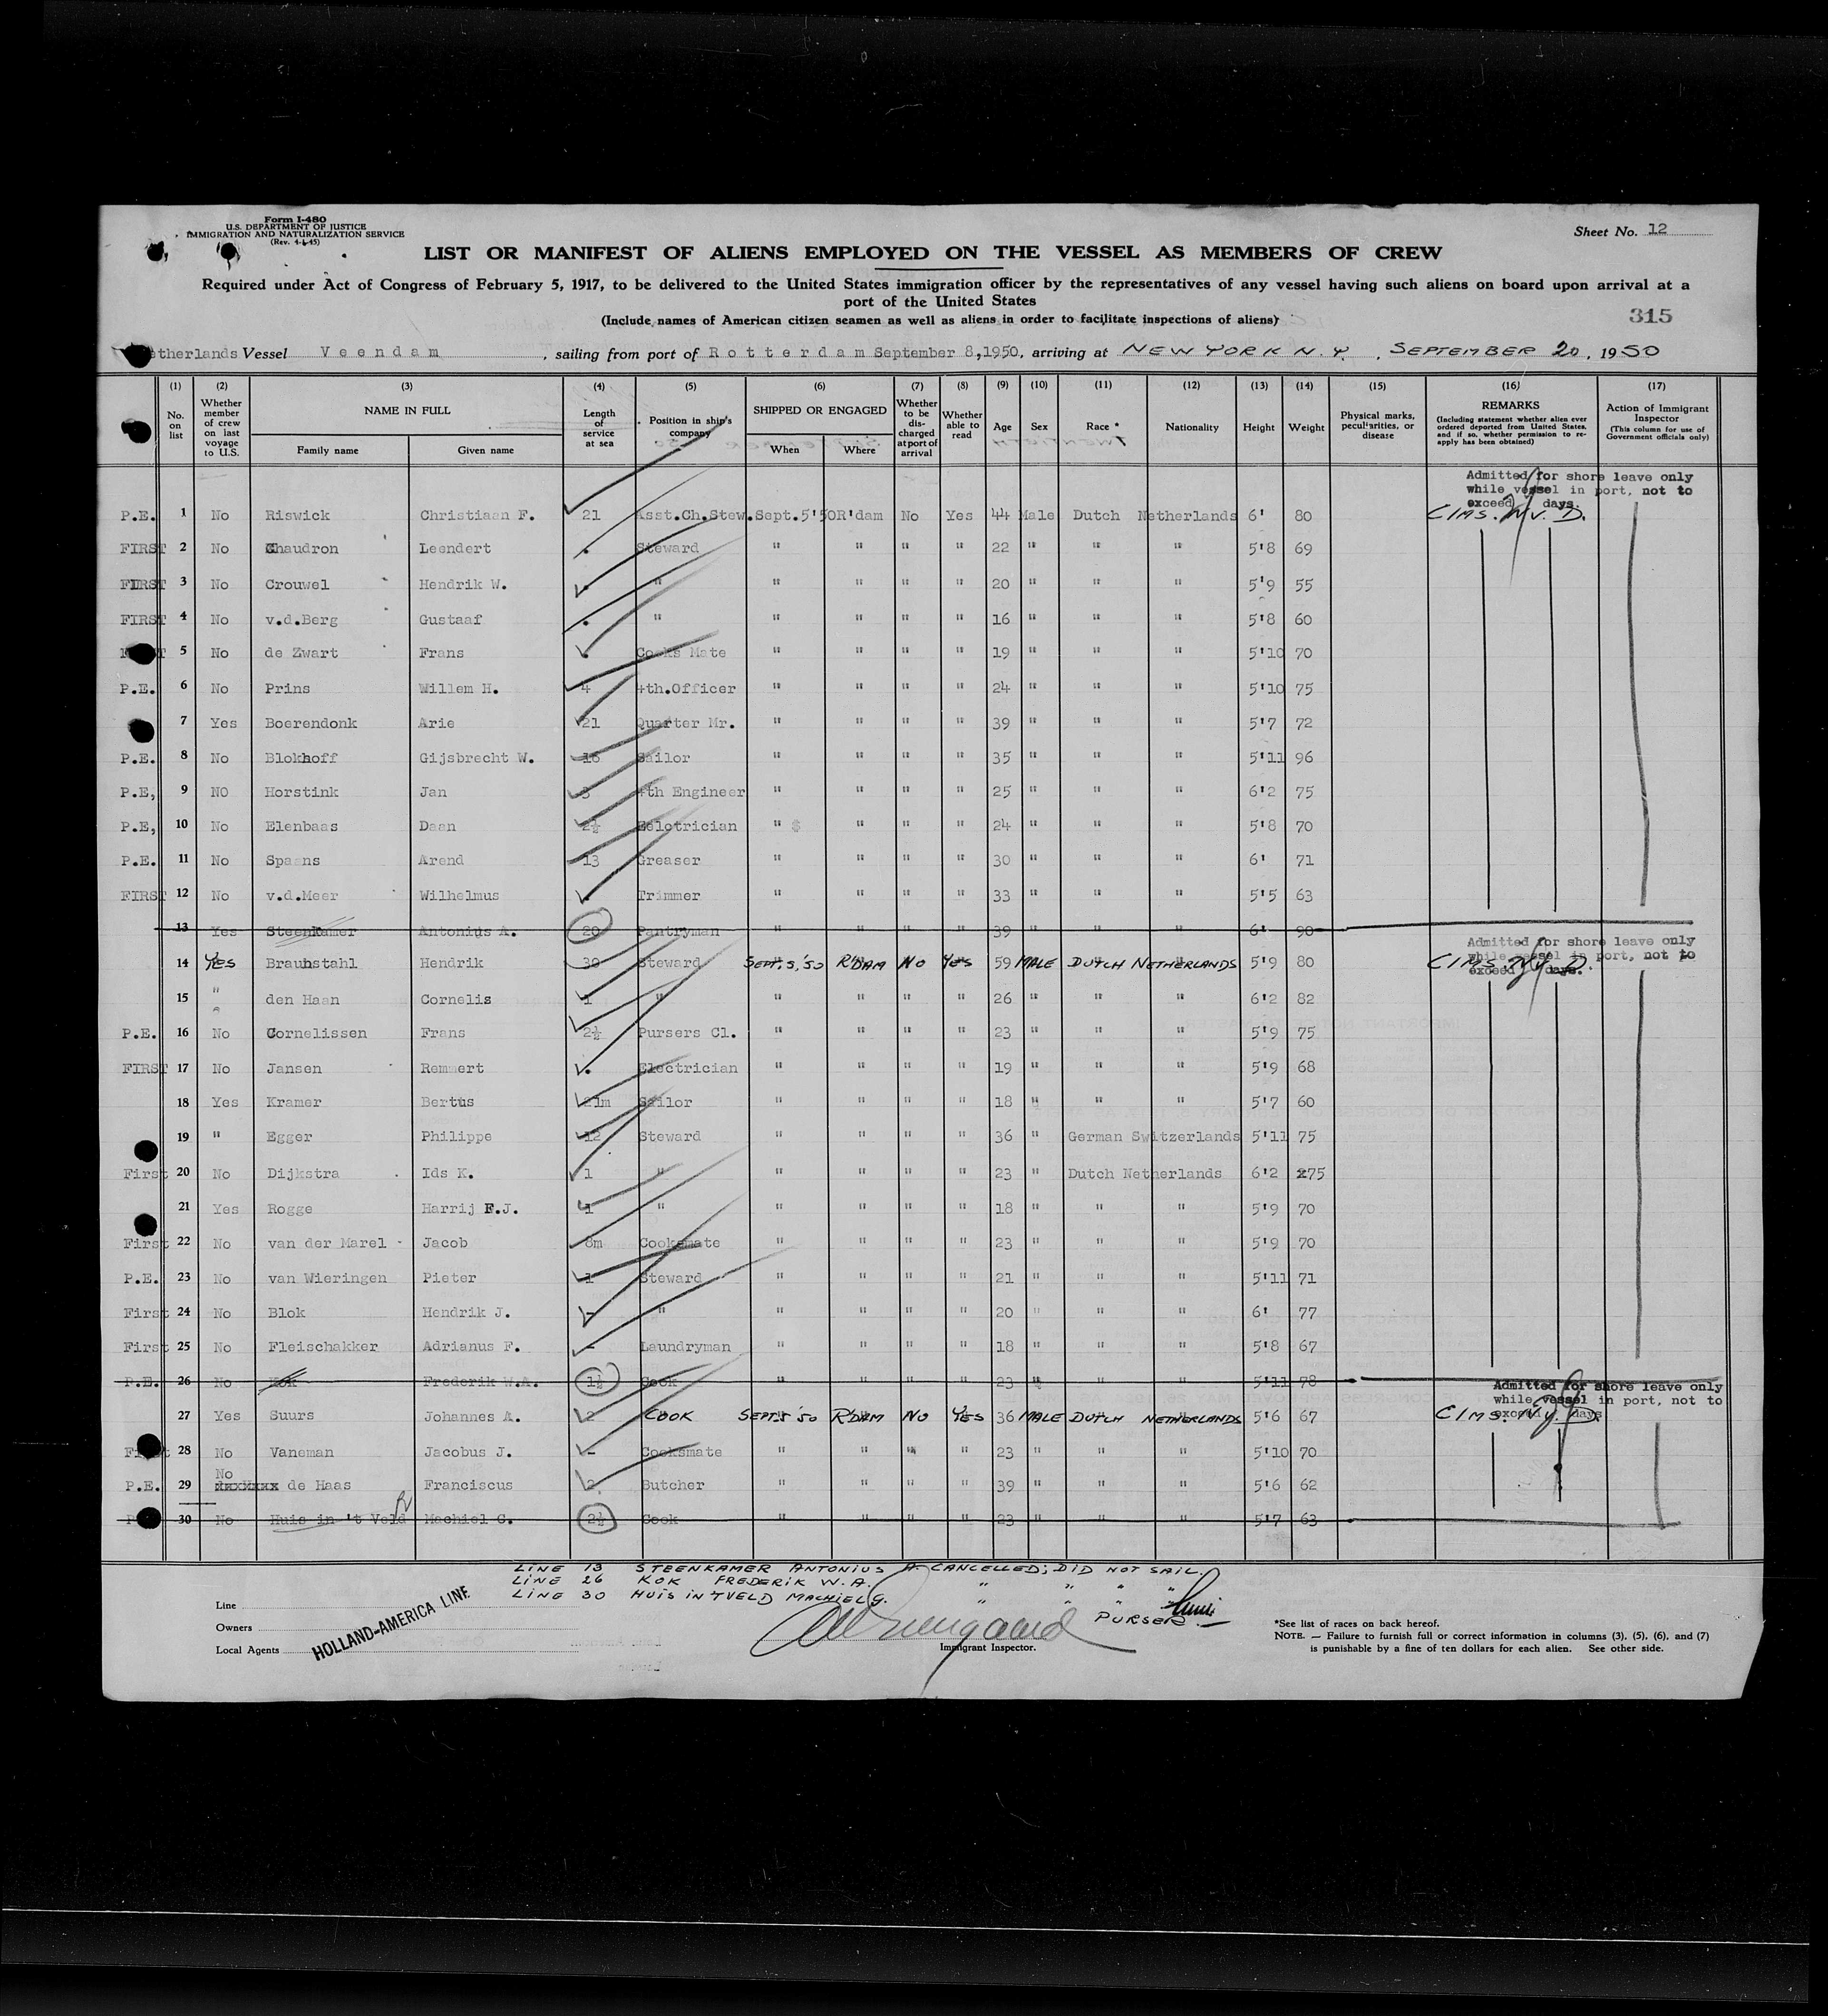 Form I-480
U.S. DEPARTMENT OF JUSTICE
IMMIGRATION AND NATURALIZATION SERVICE
(Rev. 4-1-45)
Sheet No. 12
LIST OR MANIFEST OF ALIENS EMPLOYED ON THE VESSEL AS MEMBERS OF CREW
Required under Act of Congress of February 5, 1917, to be delivered to the United States immigration officer by the representatives of any vessel having such aliens on board upon arrival at a
port of the United States
(Include names of American citizen seamen as well as aliens in order to facilitate inspections of aliens)
315
etherlands Vessel Veendam, sailing from port of Rotterdam September 8,1950, arriving at NEW YORK N.Y., SEPTEMBER 20, 1950
(1) (2) (3) (4) (5) (6) (7) (8) (9) (10) (11) (12) (13) (14) (15) (16) (17)
No. on list
Whether member of crew on last voyage to U.S.
NAME IN FULL
Family name
Given name
Length of service at sea
Position in ship's company
SHIPPED OR ENGAGED
When
Where
Whether to be discharged at port of arrival
Whether able to read
Age
Sex
Race *
Nationality
Height
Weight
Physical marks, peculiarities, or disease
REMARKS
(Including statement whether alien ever ordered deported from United States, and if so, whether permission to re-apply has been obtained)
Action of Immigrant Inspector
(This column for use of Government officials only)
Admitted for shore leave only
while vessel in port, not to
exceed days.
P.E. 1 No Riswick Christiaan F. 21 Asst.Ch.Stew. Sept.5'50 R'dam No Yes 44 Male Dutch Netherlands 6' 80
FIRST 2 No Chaudron Leendert . Steward " " " " 22 " " " 5'8 69
FIRST 3 No Crouwel Hendrik W. . " " " " " 20 " " " 5'9 55
FIRST 4 No v.d.Berg Gustaaf . " " " " " 16 " " " 5'8 60
5 No de Zwart Frans . Cooks Mate " " " " 19 " " " 5'10 70
P.E. 6 No Prins Willem H. 4 4th.Officer " " " " 24 " " " 5'10 75
7 Yes Boerendonk Arie 21 Quarter Mr. " " " " 39 " " " 5'7 72
P.E. 8 No Blokhoff Gijsbrecht W. 16 Sailor " " " " 35 " " " 5'11 96
P.E, 9 NO Horstink Jan 3 4th Engineer " " " " 25 " " " 6'2 75
P.E, 10 No Elenbaas Daan 2½ Eelctrician " " " " 24 " " " 5'8 70
P.E. 11 No Spaans Arend 13 Greaser " " " " 30 " " " 6' 71
FIRST 12 No v.d.Meer Wilhelmus . Trimmer " " " " 33 " " " 5'5 63
13 Yes Steenkamer Antonius A. 20 Pantryman " " " " 39 " " " 6' 90
Admitted for shore leave only
while vessel in port, not to
exceed days.
14 YES Brauhstahl Hendrik 30 Steward SEPT. 5, '50 R'DAM NO YES 59 MALE DUTCH NETHERLANDS 5'9 80
15 " den Haan Cornelis 1 " " " " " 26 " " " 6'2 82
P.E. 16 No Cornelissen Frans 2½ Pursers Cl. " " " " 23 " " " 5'9 75
FIRST 17 No Jansen Remmert . Electrician " " " " 19 " " " 5'9 68
18 Yes Kramer Bertus 21m Sailor " " " " 18 " " " 5'7 60
19 " Egger Philippe 12 Steward " " " " 36 " German Switzerlands 5'11 75
First 20 No Dijkstra Ids K. 1 " " " " " 23 " Dutch Netherlands 6'2 75
21 Yes Rogge Harrij F.J. 1 " " " " " 18 " " " 5'9 70
First 22 No van der Marel Jacob 8m Cooksmate " " " " 23 " " " 5'9 70
P.E. 23 No van Wieringen Pieter 1 Steward " " " " 21 " " " 5'11 71
First 24 No Blok Hendrik J. - " " " " " 20 " " " 6' 77
First 25 No Fleischakker Adrianus F. - Laundryman " " " " 18 " " " 5'8 67
P.E. 26 No Kok Frederik W.A. 1½ Cook " " " " 23 " " " 5'11 78
Admitted for shore leave only
while vessel in port, not to
exceed days
27 Yes Suurs Johannes A. 2 COOK SEPT 5 '50 R'DAM NO YES 36 MALE DUTCH NETHERLANDS 5'6 67
First 28 No Vaneman Jacobus J. - Cooksmate " " " " 23 " " " 5'10 70
P.E. 29 No de Haas Franciscus 2 Butcher " " " " 39 " " " 5'6 62
30 No Huis in 't Veld Machiel G. 2½ Cook " " " " 23 " " " 5'7 63
LINE 13 STEENKAMER ANTONIUS A. CANCELLED; DID NOT SAIL.
LINE 26 KOK FREDERIK W.A. " " " "
LINE 30 HUIS IN TVELD MACHIEL G. " " " "
PURSER.
Line
Owners
Local Agents
HOLLAND-AMERICA LINE
Immigrant Inspector.
*See list of races on back hereof.
NOTE. — Failure to furnish full or correct information in columns (3), (5), (6), and (7)
is punishable by a fine of ten dollars for each alien. See other side.